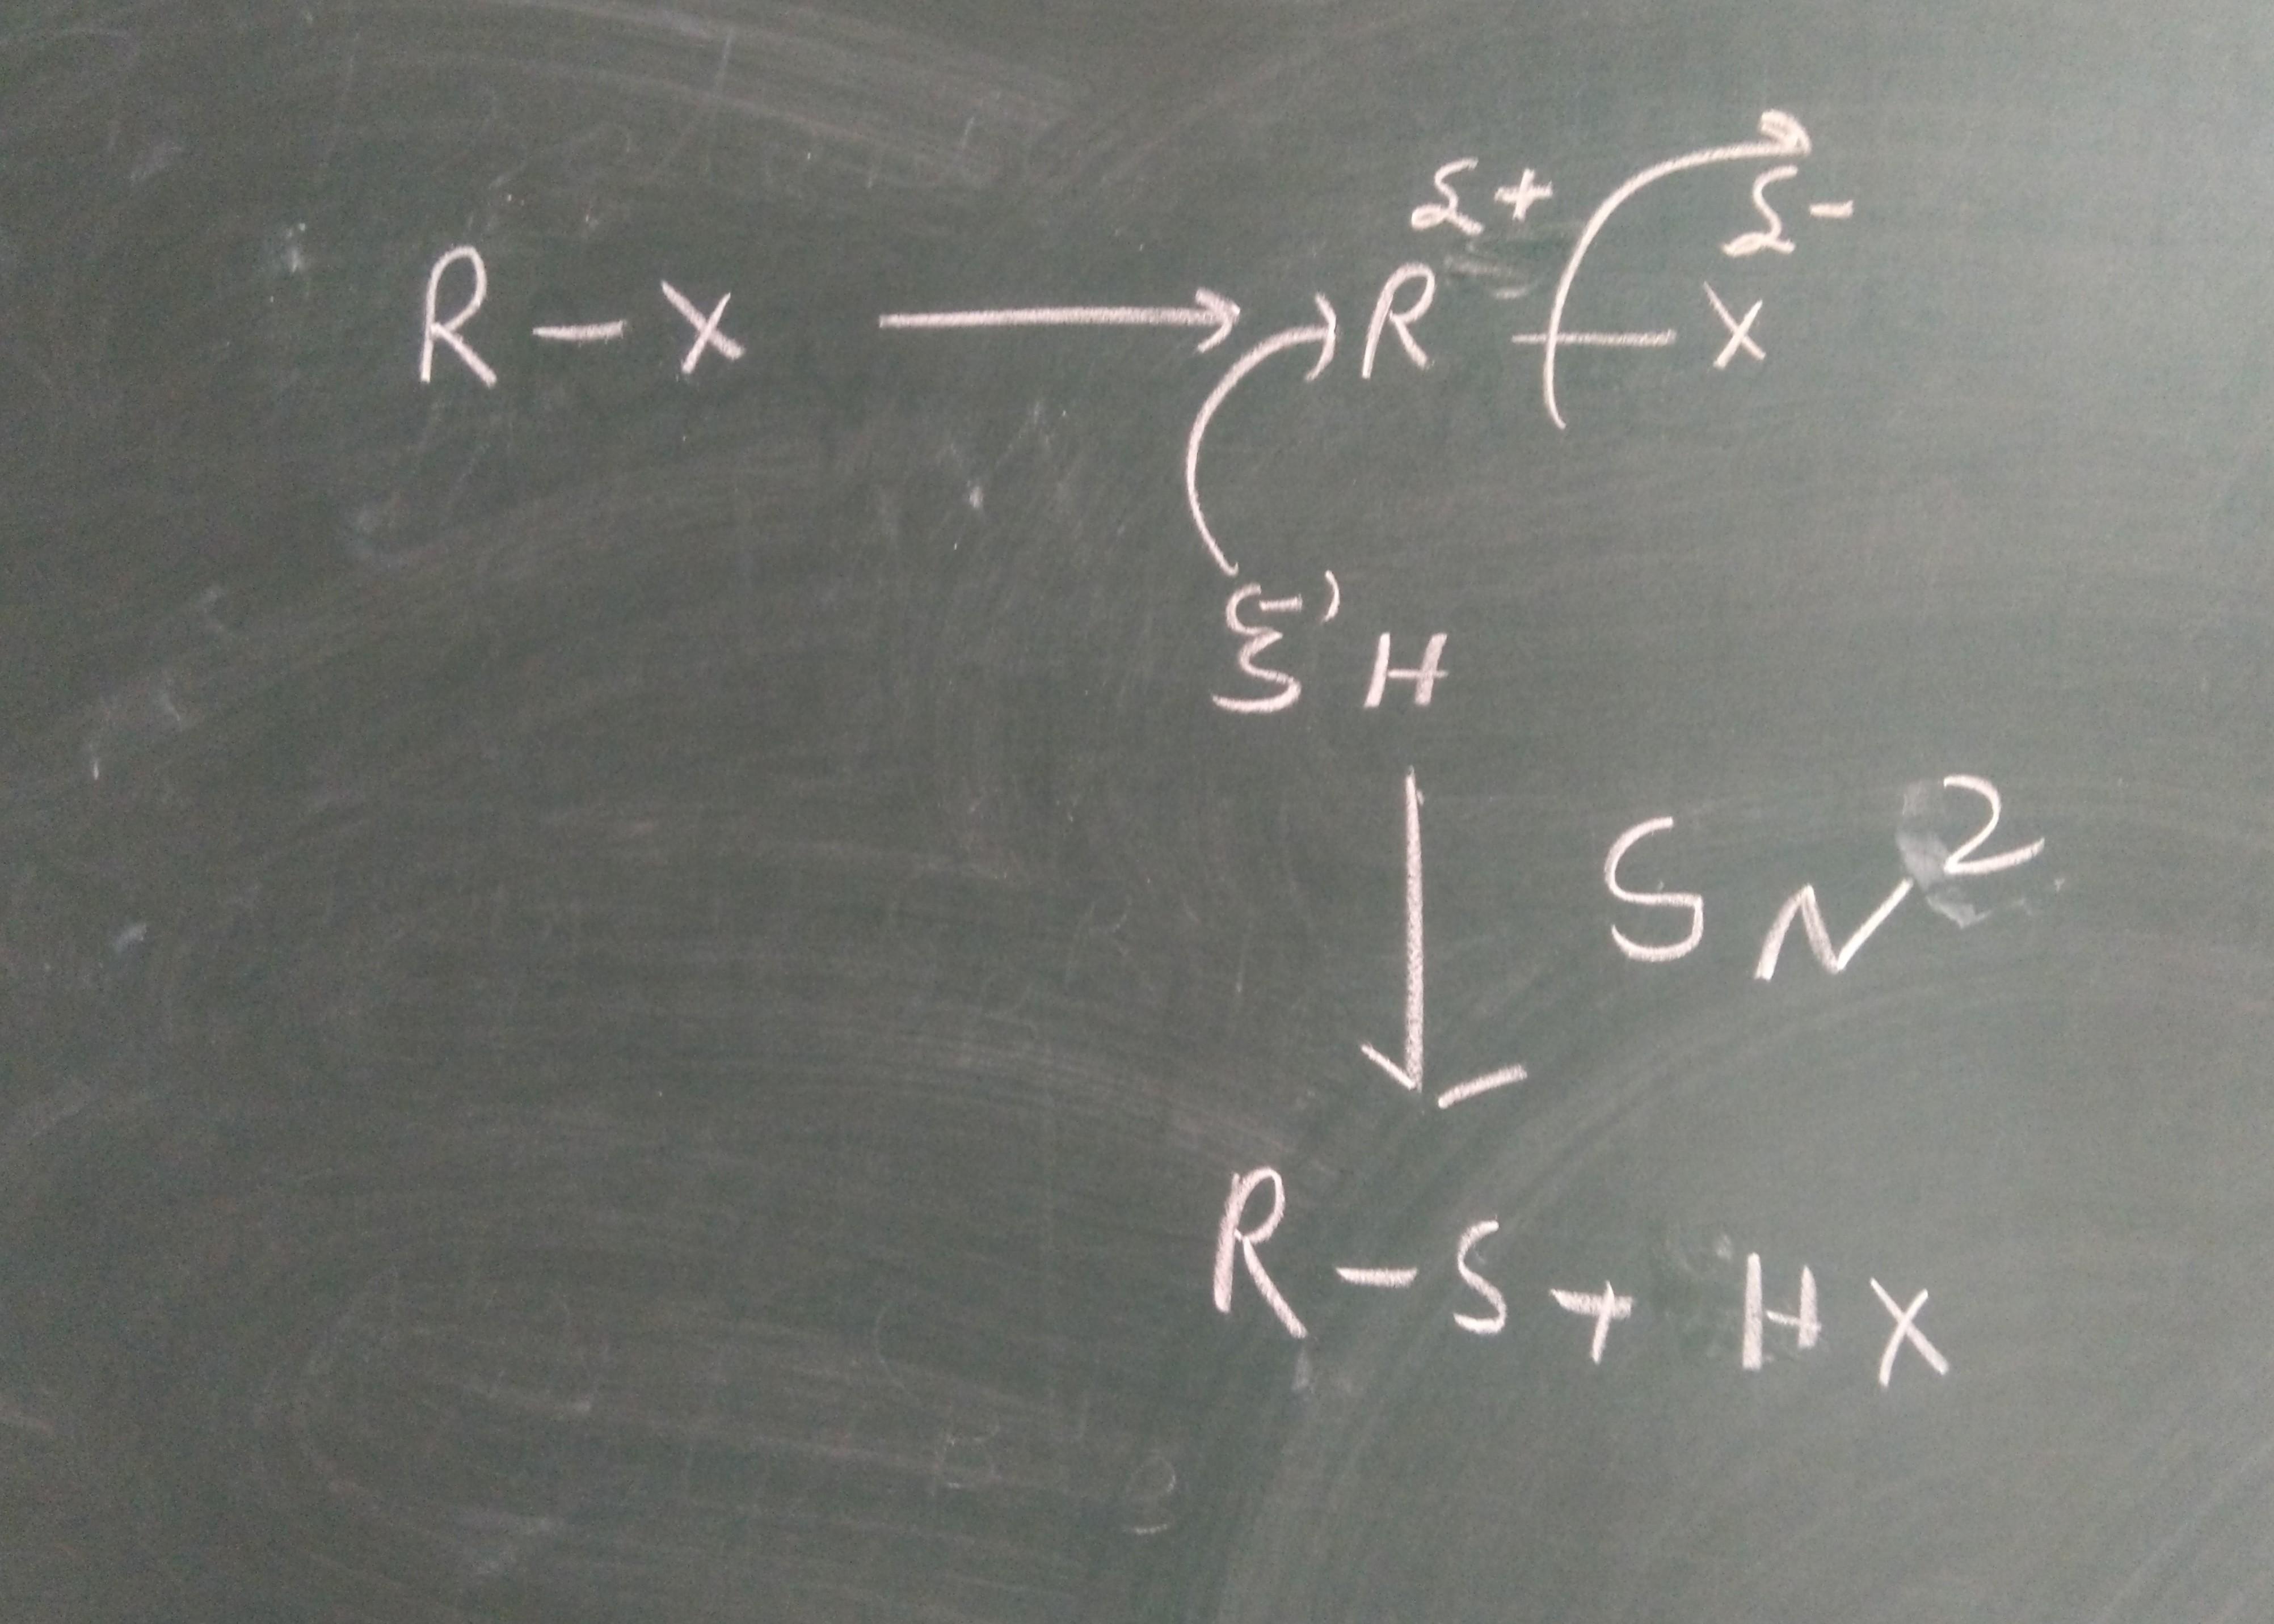 δ+ δ-
R-X ⟶ R-X
(-)
SH
↓ SN²
R-S + HX